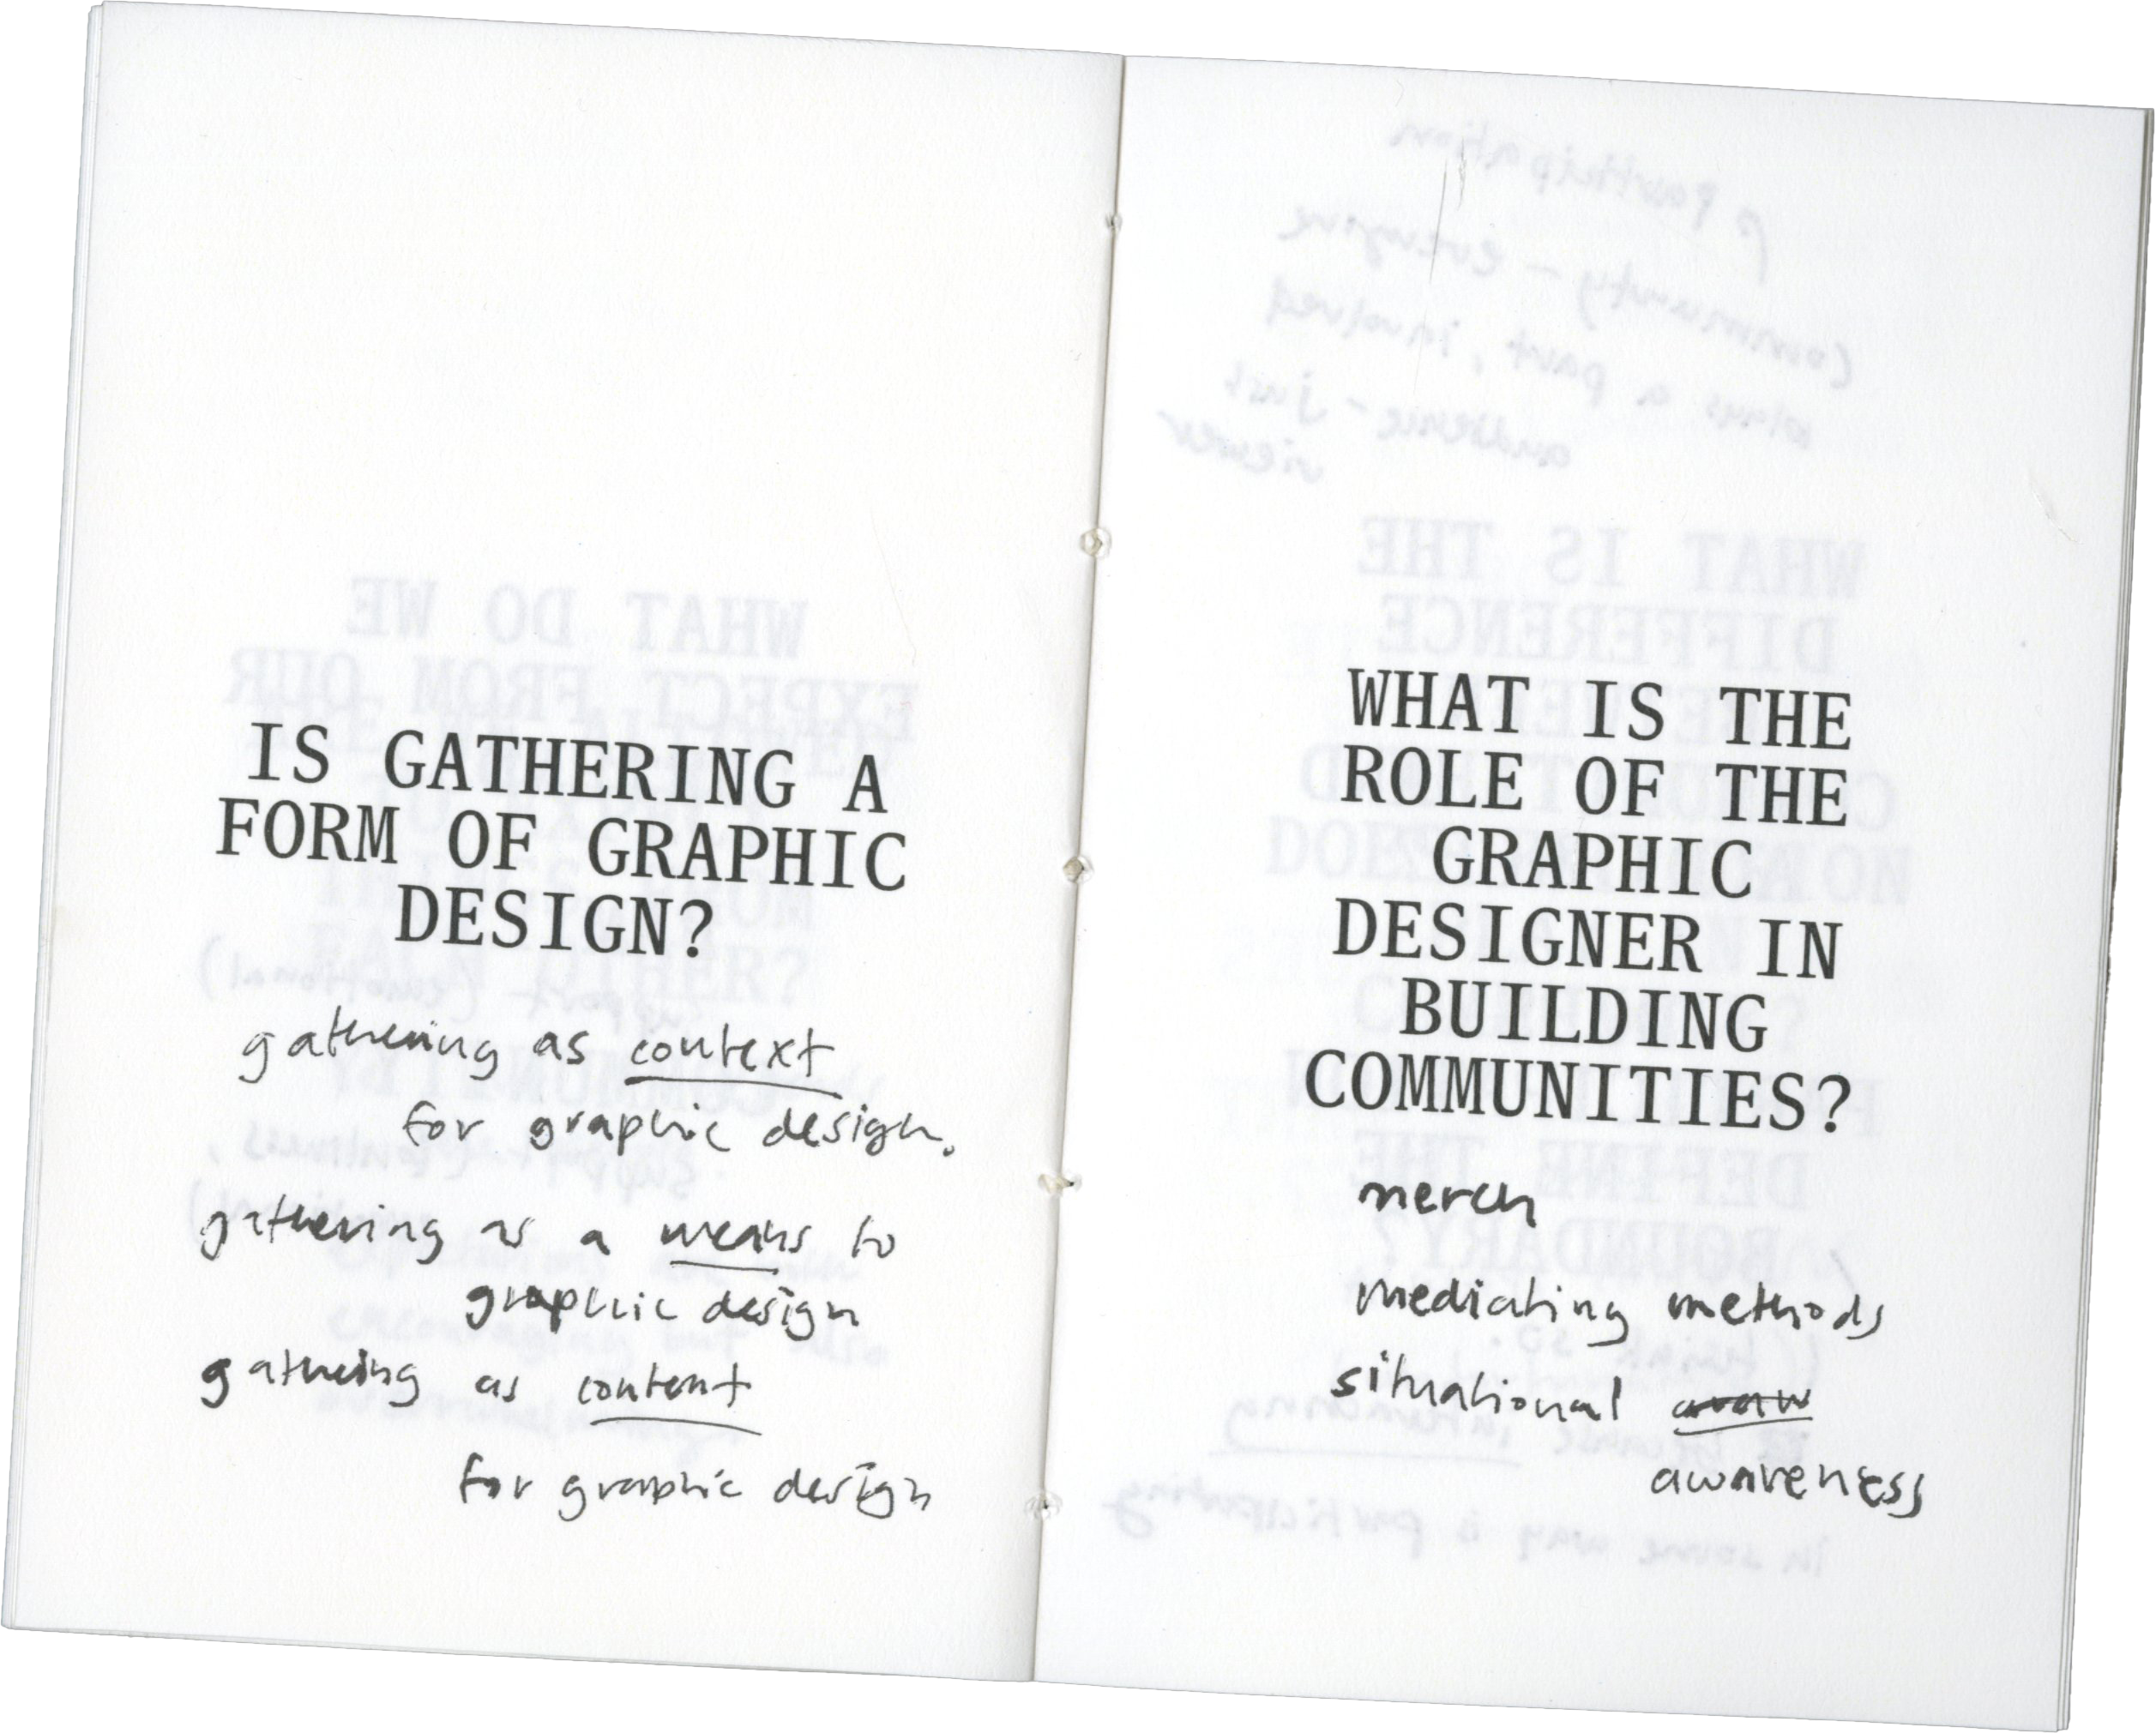 IS GATHERING A
FORM OF GRAPHIC
DESIGN?
gathering as context
for graphic design.
gathering as a means to
graphic design
gathering as content
for graphic design
WHAT IS THE
ROLE OF THE
GRAPHIC
DESIGNER IN
BUILDING
COMMUNITIES?
merch
mediating methods
situational
awareness